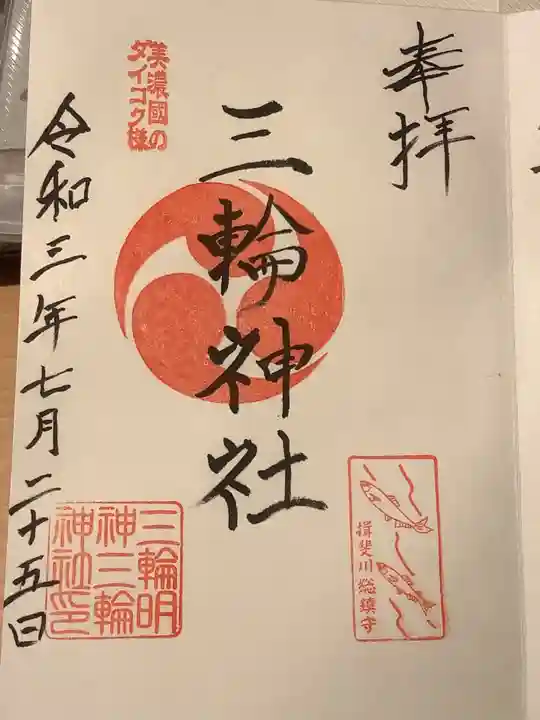 奉拝
揖斐川総鎮守
三輪神社
美濃國の
ダイコク様
三輪明
神三輪
神社印
令和三年七月二十五日